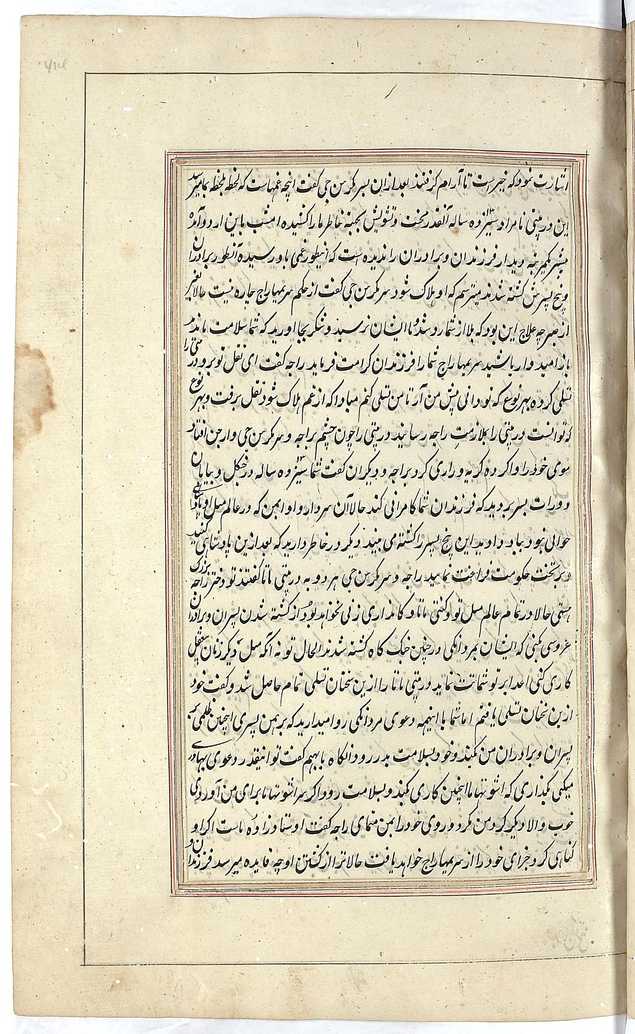 اشارت شود که خیریت است تا آرام گرفتند بعد از آن سرکرسن جی گفت انچه غمهاست که لحظه بلحظه بما میرسد
این درپتی نامراد سیزده ساله آنقدر محنت و تشویش بجهة خاطر ما را کشیده امشب باین اردو آمده
دیدار فرزندان و برادران را ندیده است که اینطور غمی باو رسیده آنطور برادران
و پنج پسرش کشته شدند میترسم که او هلاک شود سرکرسن جی گفت از حکم سریمهاراج چاره نیست حالا بغیر
از صبر چه علاج این بود که بلا از شما رو شد و با ایشان برسید و شکر بجا آورید که شما سلامت ماندید
باز امیدوار باشید سریمهاراج شما را فرزندان کرامت فرماید راجه گفت ای نقل تو برو درپتی را
تسلی کرده بهر نوع که تو دانی پیش من آر تا من تسلی کنم مبادا که از غم هلاک شود نقل برفت و بهر نوع
که توانست درپتی را بملازمت راجه رسانید درپتی را چون چشم راجه و سرکرسن جی و ارجن افتاد
موی خود را وا کرده گریه و زاری کرد براجه و دیگران گفت شما سیزده ساله در جنگل و بیابان
ودرات بسر بردید که فرزندان شما کامرانی کند حالا آن سردار و ابهمن که در عالم مثل او
جوانی نبود بباد دادید این پنج پسر را کشته می بیند دیگر در خاطر دارید که بعد ازین پادشاهی کنید
و بر تخت حکومت فراغت نمایید راجه و سرکرسن جی هر دو به درپتی ماتا گفتند تو دختر راجه بزرگ
هستی حالا در تمام عالم مثل تو و کنتی ماتا و کامداری زنی نخواهد بود از کشته شدن پسران و برادران
عروسی کنی که ایشان بمردانگی در چنین جنگ گاه کشته شدند الحال تو نه آنکه مثل دیگر زنان بیعقل
کاری کنی اعدا بر تو شماتت نماید درپتی ماتا را ازین سخنان تسلی تمام حاصل شد و گفت خود
ازین سخنان تسلی یافتم اما شما با اینهمه دعوی مردانگی روا میدارید که برهمن پسری اینچنین ظلمی بر
پسران و برادران من بکند و خود بسلامت بدر رود آنگاه با بهیم گفت تو اینقدر دعوی بهادری
میکنی بگذاری که اشوتهاما اینچنین کاری بکند و بسلامت رود اگر سر اشوتهاما برای من آوردی
خوب والا دیگر گرد من نگردی و روی خود را بمن منمای راجه گفت او استادزاده ماست اگر او
گناهی کرد جزای خود را از سریمهاراج خواهد یافت حالا ترا از کشتن او چه فایده میرسد فرزندان